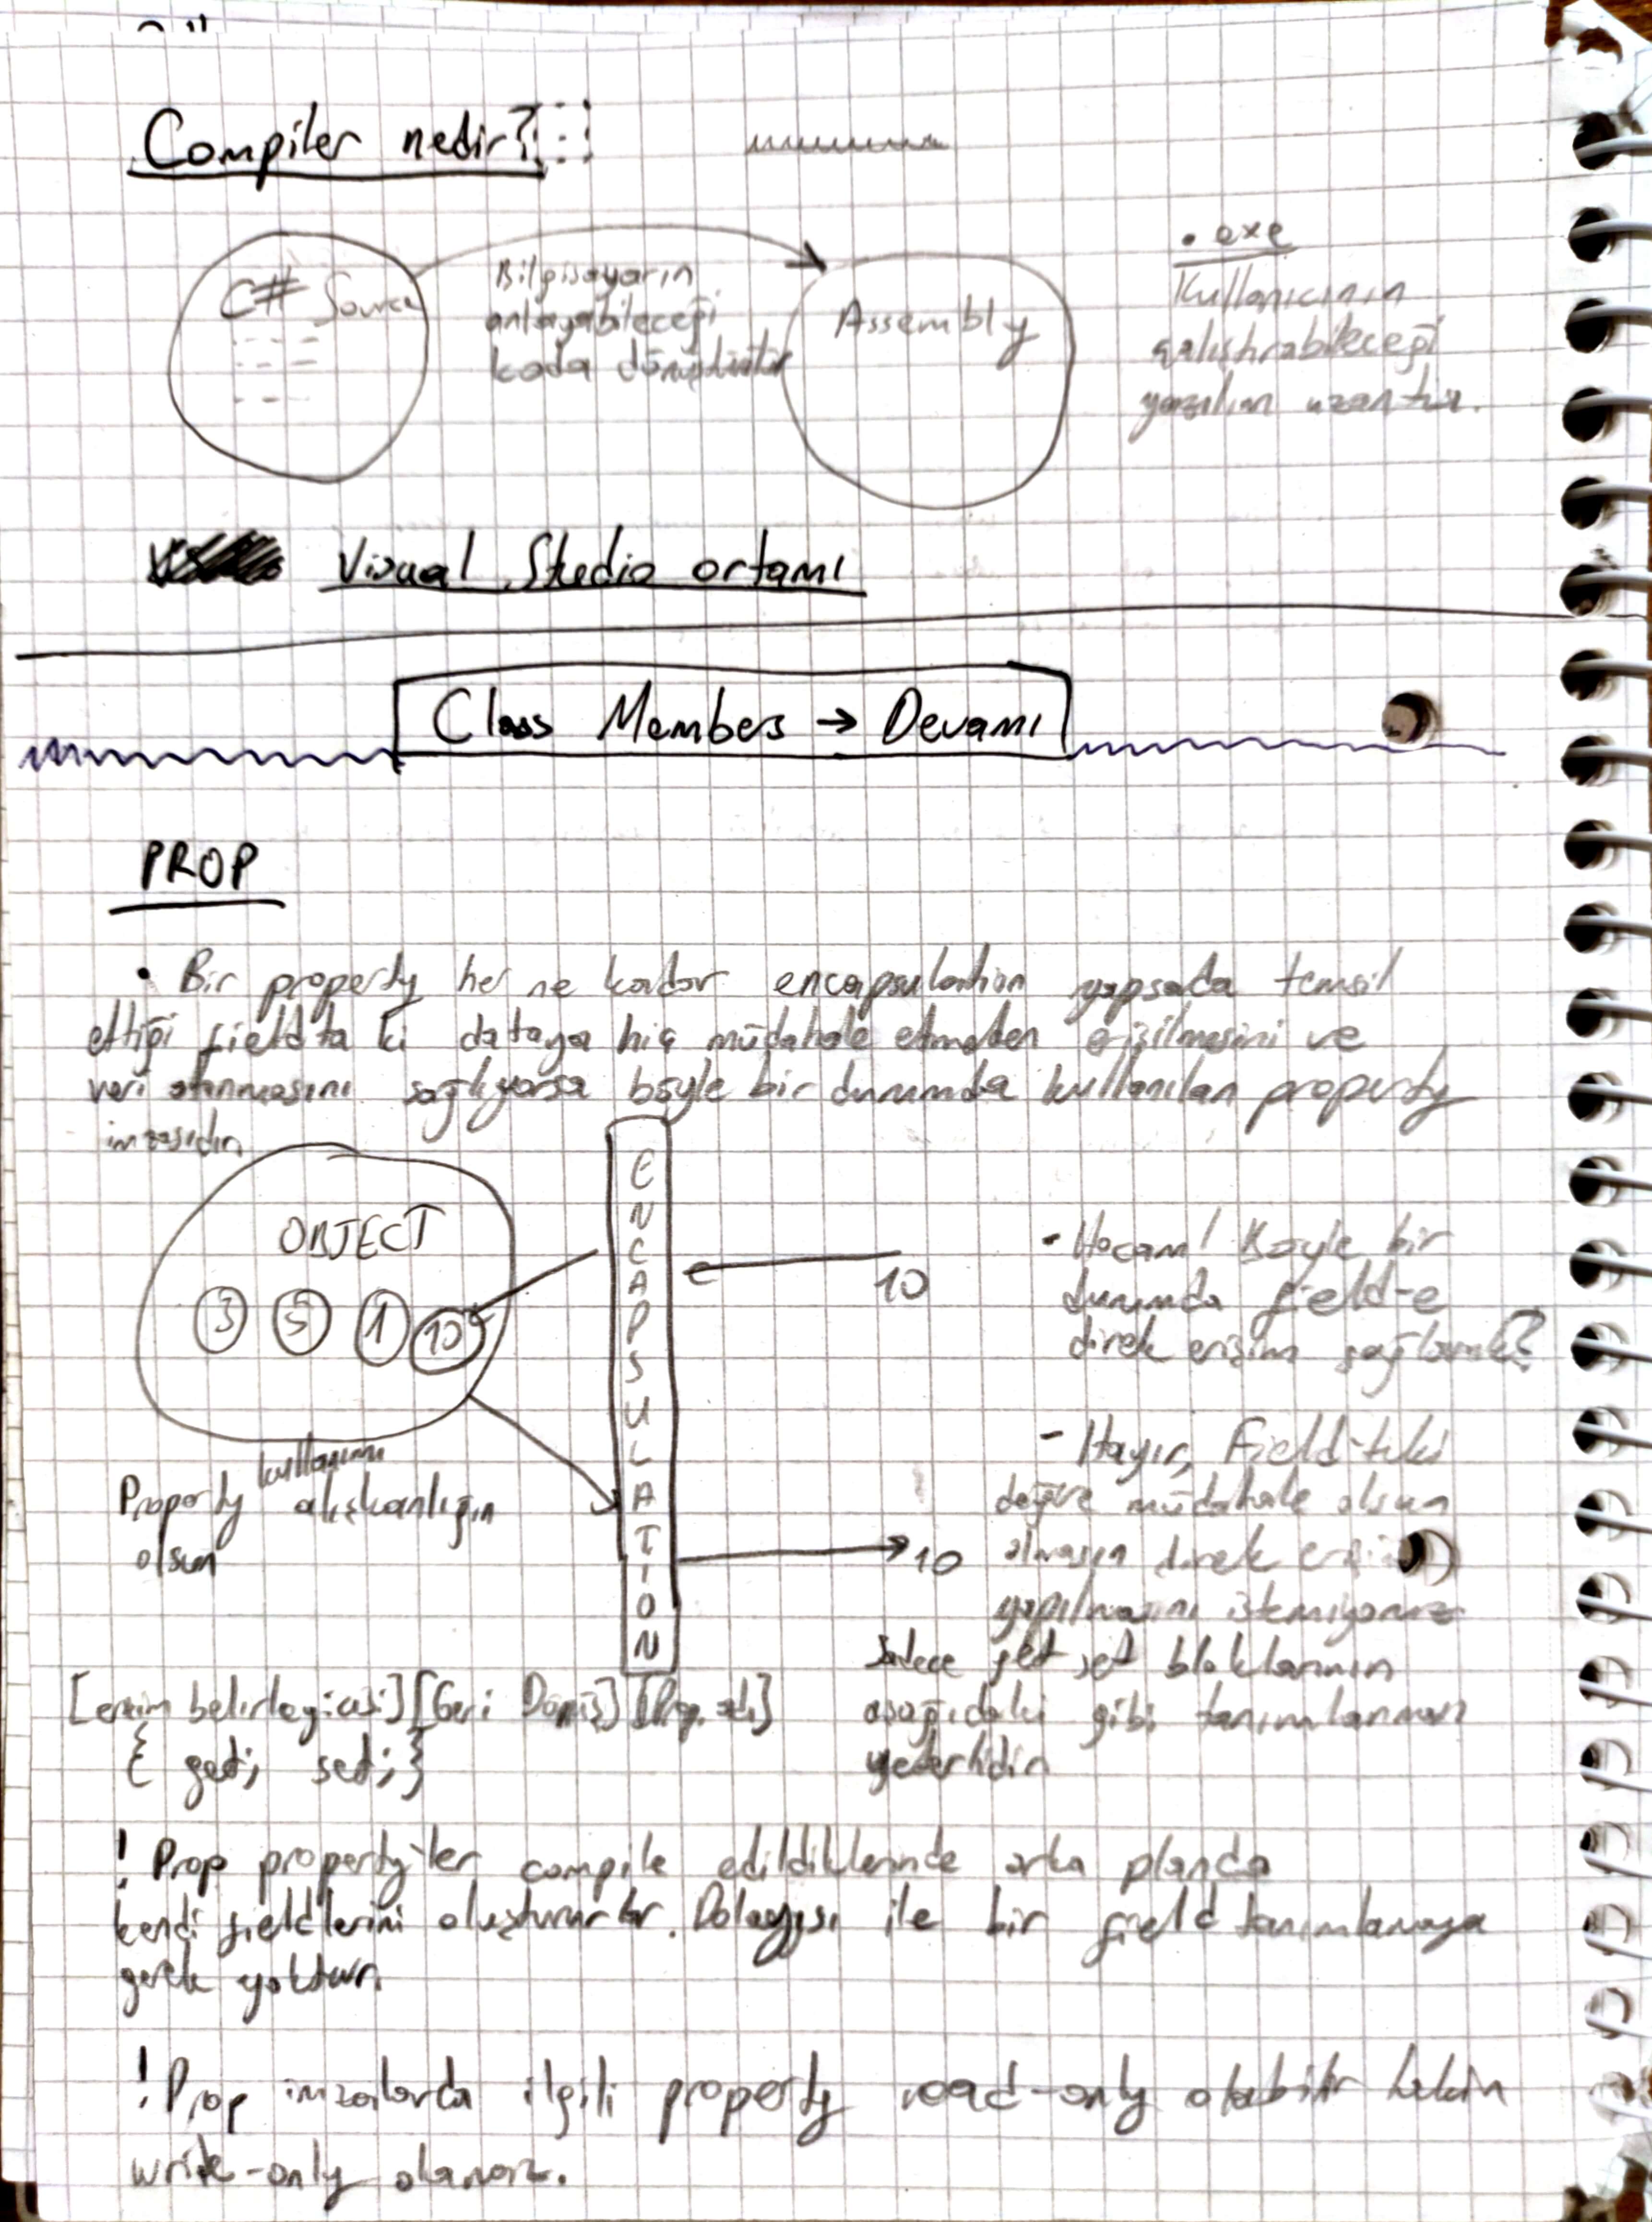 Compiler nedir?
C# Source
Bilgisayarın
anlayabileceği
koda dönüştürür
Assembly
.exe
Kullanıcının
çalıştırabileceği
yazılım uzantısı.
Visual Studio ortamı
Class Members → Devamı
PROP
• Bir property her ne kadar encapsulation yapsada temsil
ettiği fieldta ki dataya hiç müdahale etmeden erişilmesini ve
veri atanmasını sağlıyorsa böyle bir durumda kullanılan property
imzasıdır.
OBJECT
3 5 1 10
ENCAPSULATION
10
- Hocam! Böyle bir
durumda field-e
direk erişim sağlasak?
- Hayır, Field-teki
değere müdahale olsun
olmasın direk erişim
yapılmasını istemiyoruz
sadece get set bloklarının
aşağıdaki gibi tanımlanması
yeterlidir.
10
Property kullanımı alışkanlığın
olsun
[erişim belirleyicisi][Geri Dönüş][Prop. adı]
{ get; set; }
! Prop property-ler compile edildiklerinde arka planda
kendi fieldlerini oluştururlar. Dolayısı ile bir field tanımlamaya
gerek yoktur.
! Prop imzalarda ilgili property read-only olabilir lakin
write-only olamaz.